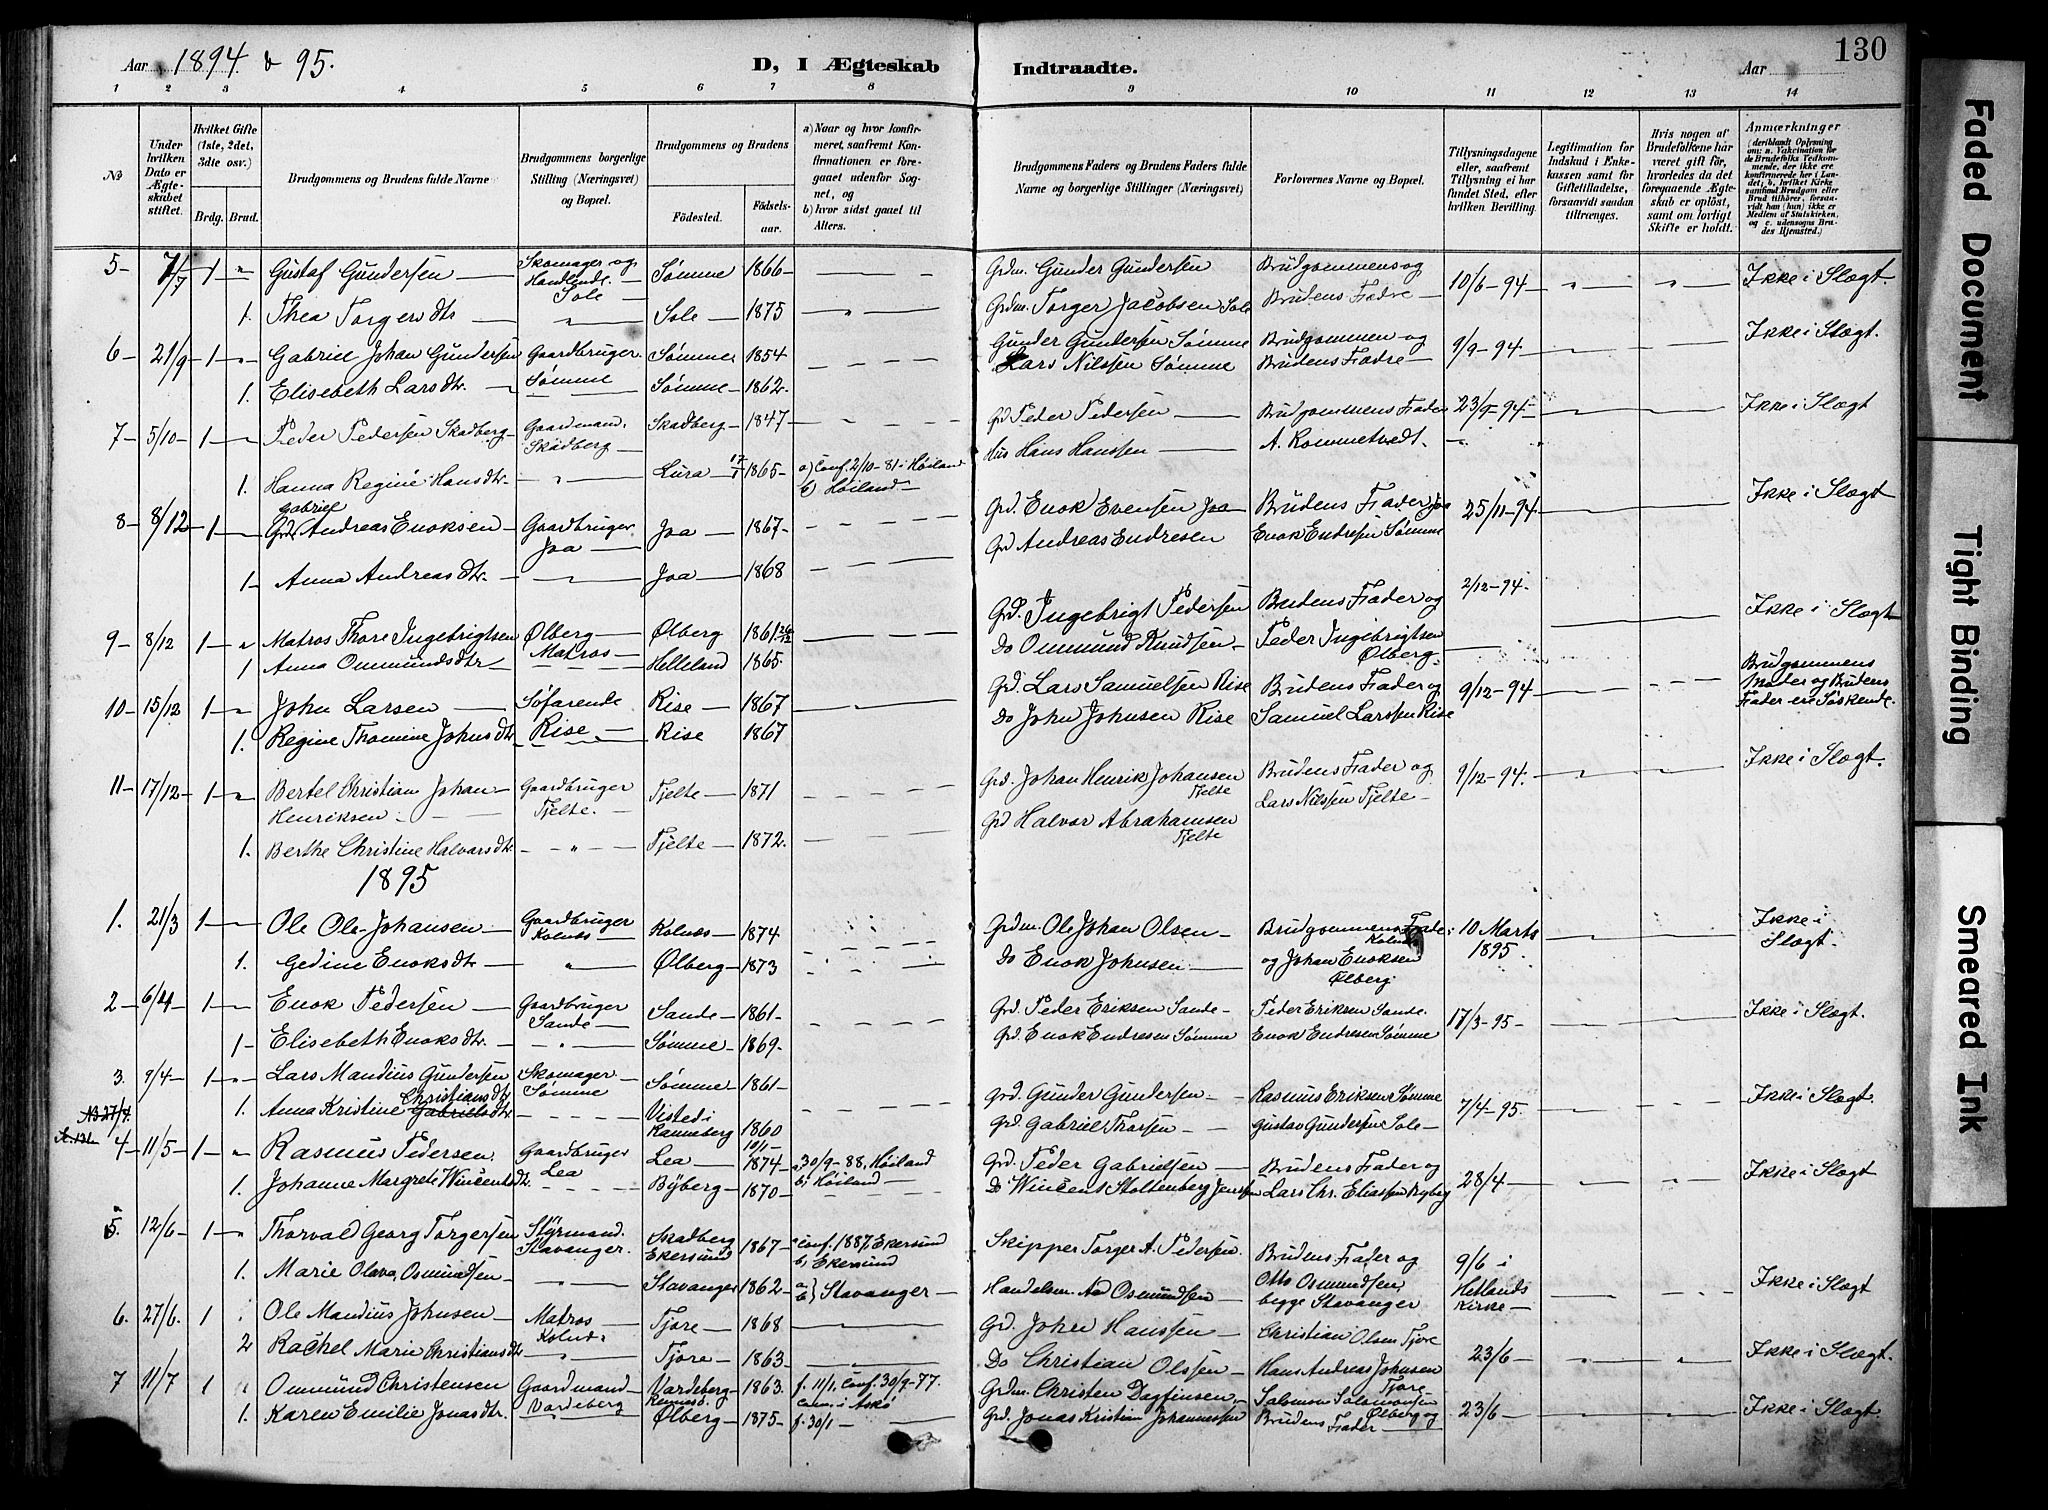 Aar 1894 & 95.
D, I Ægteskab Indtraadte.
Aar
130
1 2 3 4 5 6 7 8 9 10 11 12 13 14
No
Under hvilken Dato er Ægteskabet stiftet.
Hvilket Gifte (1ste, 2det, 3die osv.)
Brdg. Brud.
Brudgommens og Brudens fulde Navne
Brudgommens borgerlige Stilling (Næringsvei) og Bopæl.
Brudgommens og Brudens
Födested. Födselsaar.
a) Naar og hvor konfirmeret, saafremt Konfirmationen er foregaaet udenfor Sognet, og
b) hvor sidst gaaet til Alters.
Brudgommens Faders og Brudens Faders fulde Navne og borgerlige Stillinger (Næringsvei)
Forlovernes Navne og Bopæl.
Tillysningsdagene eller, saafremt Tillysning ei har fundet Sted, efter hvilken Bevilling.
Legitimation for Indskud i Enkekassen samt for Giftetilladelse, forsaavidt saadan tiltrænges.
Hvis nogen af Brudefolkene har været gift för, hvorledes da det foregaaende Ægteskab er oplöst, samt om lovligt Skifte er holdt.
Anmærkninger (deriblandt Oplysning om: a. Vakcination for de Brudefolks Vedkommende, der ikke ere konfirmerede her i Landet; b. hvilket Kirkesamfund Brudgom eller Brud tilhörer, forsaavidt han (hun) ikke er Medlem af Statskirken, og c. udensogns Brudes Hjemsted.)
5 – 7/7 1 – Gustaf Gundersen – Skomager og Handlende Sole – Sømme 1866 – Grdm. Gunder Gundersen Brudgommens og 10/6 – 94 Ikke i Slægt.
1. Thea Torgersdtr – Sole – 1875 Grdm. Torger Jacobsen Sole Brudens Fædre –
6 – 21/9 – 1 Gabriel Johan Gundersen Gaardbruger Sømme 1854 Gunder Gundersen Sømme Brudgommen og 9/9 – 94 Ikke i Slægt.
1. Elisebeth Larsdtr. – Sømme Sømme – 1862. Lars Nilssen Sømme Brudens Fædre –
7 – 5/10 – 1 – Peder Pedersen Skadberg – Gaardmand. Skadberg – Skadberg – 1847 Grd Peder Pedersen – Brudgommens Fader 23/9 – 94 – Ikke i Slægt
1. Hanna Regine Hansdtr – Lura 17/1 1865 – a) Conf. 2/10 – 81 i Høiland b) Høiland – Hus Hans Hanssen – A. Rommetvedt.
8 – 8/12 – 1 – Gabriel Andreas Enoksen – Gaardbruger Joa – Joa – 1867 – Grd. Enok Evensen Joa – Brudens Fader og 25/11 – 94. Ikke i Slægt
1 – Anna Andreasdtr. – Joa – 1868 Grd Andreas Endresen Enok Endresen Sømme
9 – 8/12 1 – Matros Thore Ingebrigtsen Ølberg – Matros – Ølberg 1861 26/12 Grd. Ingebrigt Pedersen Brudens Fader og 2/12 – 94. Ikke i Slægt
1 Anna Ommundsdtr – Helleland 1865. Do Ommund Knudsen – Peder Ingebrigtsen Ølberg –
10 – 15/12 1 – John Larsen – Søfarende Rise – Rise – 1867 Grd. Lars Samuelsen Rise Brudens Fader og 9/12 – 94 Brudgommens Moder og Brudens Fader ere Søskende.
1. Regine Thomine Johnsdtr Rise 1867 Do John Johnsen Rise Samuel Larssen Rise
11 – 17/12 – 1 Bertel Christian Johan Henriksen – Gaardbruger Tjelte. – Tjelte – 1871 Grd. Johan Henrik Johansen Tjelte Brudens Fader og 9/12 – 94. Ikke i Slægt.
Lars Nilssen Tjelte –
1. Berthe Christine Halvarsdtr. Tjelte – 1872. Grd Halvor Abrahamsen Tjelte
1895
1. 21/3 1 – Ole Ole Johansen – Gaardbruger Kolnæs – Kolnæs – 1874 Grdm. Ole Johan Olsen – Brudgommens Fader Kolnæs 10 Marts 1895 Ikke i Slægt.
1. Gedine Enoksdtr – Ølberg – 1873 Do Enok Johnsen – og Johan Enoksen Ølberg
2 – 6/4 1 – Enok Pedersen – Gaardbruger Sande – Sande – 1861 – Grd. Peder Eriksen Sande – Peder Eriksen Sande. 17/3 – 95 – Ikke i Slægt.
1 – Elisebeth Enoksdtr. – Sømme – 1869. Grd. Enok Endresen Sømme Enok Endresen Sømme
3. 9/4 – 1 – Lars Mandius Gundersen Skomager – Sømme Sømme 1861 – Grd. Gunder Gundersen – Rasmus Eriksen Sømme 7/4 – 95. Ikke i Slægt.
1. Anna Kristine Christiansdtr Gabrielsdtr – Visted i Ranneberg 1860 Grd. Gabriel Thorsen – Gustav Gundersen Sole –
4 11/5 – 1 – Rasmus Pedersen. Gaardbruger Lea Lea – 10/1 – 1874 – a 30/9 – 88. Høiland b, Høiland – Grd. Peder Gabrielsen – Brudens Fader og 28/4 – Ikke i Slægt
1. Johanne Margrete Wincentsdtr. Byberg – 1870 – Do Wincents Stoltenberg Jenssen Lars Chr. Eliassen Byberg
5. 12/6 – 1 Thorvald Georg Torgersen Styrmand. Stavanger. Skadberg Ekersund 1867 – Conf. 1887, Ekersund b, Ekersund Skipper Torger A. Pedersen. Brudens Fader og 9/6 i Hetlands Kirke – Ikke i Slægt
1. Marie Olava Osmundsen – Stavanger 1862 – a b) Stavanger – Handelsm. Aad Osmundsen – Otto Osmundsen, begge Stavanger
6. 27/6. 1 Ole Mandius Johnsen – Matros – Kolnæs Tjore – 1868 Grd. John Hanssen – Christian Olsen Tjore 23/6 – Ikke i Slægt.
2 Rachel Marie Christiansdtr Tjore – 1863 – Do Christian Olssen – Hans Andreas Johnsen Tjore
7 11/7 1 Ommund Christensen Gaardmand – Vardeberg Vardeberg – Rennesø. 1863. f. 11/1. Conf. 30/9 – 77. Grdm. Christen Dagfinsen – Salomon Salomonsen Ølberg og 23/6 – Ikke i Slægt.
1. Karen Emilie Jonasdtr. Ølberg – 1875 – f. 30/1 – Grd. Jonas Kristian Johannessen Brudens Fader –
Faded Document
Tight Binding
Smeared Ink